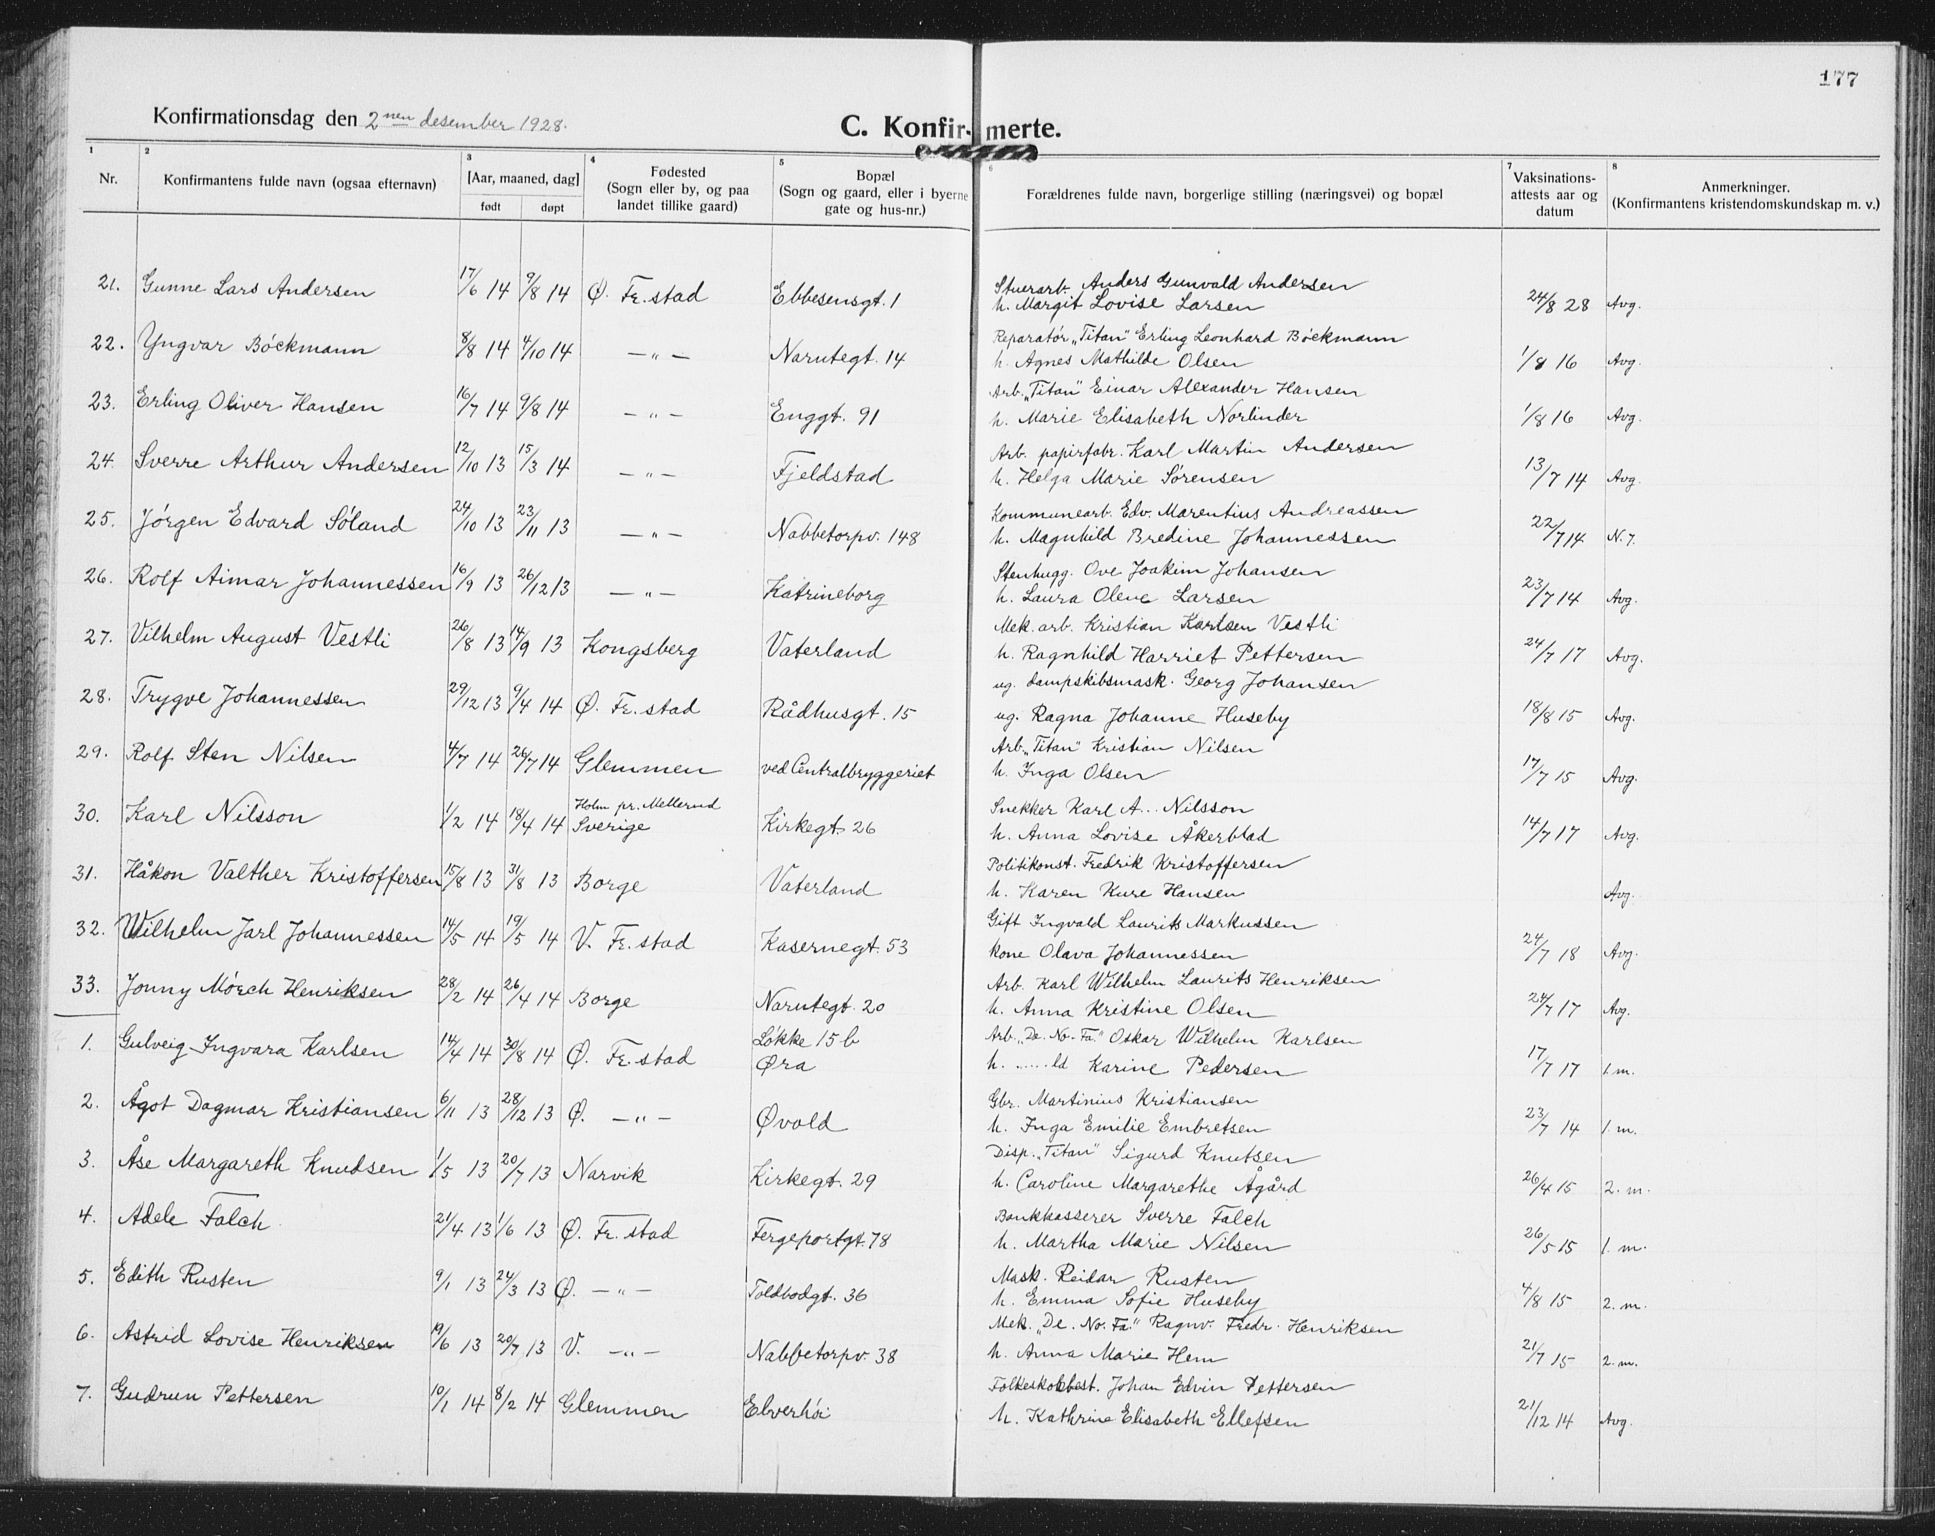 177
Konfirmationsdag den 2nen desember 1928.
C. Konfir- merte.
1 2 3 4 5 6 7 8
Nr. Konfirmantens fulde navn (ogsaa efternavn) [Aar, maaned, dag] født døpt Fødested (Sogn eller by, og paa landet tillike gaard) Bopæl (Sogn og gaard, eller i byerne gate og hus-nr.) Forældrenes fulde navn, borgerlige stilling (næringsvei) og bopæl Vaksinations-attests aar og datum Anmerkninger. (Konfirmantens kristendomskundskap m. v.)
21. Gunne Lars Andersen 17/6 14 9/8 14 Ø. Fr.stad Ebbesensgt. 1 Stuerarb. Anders Gunvald Andersen
h. Margit Lovise Larsen 24/8 28 Avg.
22. Yngvar Böckmann 8/8 14 4/10 14 —"— Narutegt. 14 Reparatør „Titan" Erling Leonhard Böckmann
h. Agnes Mathilde Olsen 1/8 16 Avg.
23. Erling Oliver Hansen 16/7 14 9/8 14 —"— Enggt. 91 Arb. „Titan" Einar Alexander Hansen
h. Marie Elisabeth Norlinder 1/8 16 Avg.
24. Sverre Arthur Andersen 12/10 13 15/3 14 —"— Fjeldstad Arb. papirfabr. Karl Martin Andersen
h. Helga Marie Sørensen 13/7 14 Avg.
25. Jørgen Edvard Søland 24/10 13 23/11 13 —"— Nabbetorpv. 148 Kommunearb. Edv. Marentius Andreassen
h. Magnhild Bredine Johannessen 22/7 14. N.7.
26. Rolf Aimar Johannessen 16/9 13 26/12 13 —"— Katrineborg Stenhugg. Ove Joakim Johansen
h. Laura Olene Larsen 23/7 14 Avg.
27. Vilhelm August Vestli 26/8 13 14/9 13 Kongsberg Vaterland Mek. arb. Kristian Karlsen Vestli
h. Ragnhild Harriet Pettersen 24/7 17 Avg.
28. Trygve Johannessen 29/12 13 9/4 14 Ø. Fr. stad Rådhusgt. 15 ug. dampskibsmask. Georg Johansen
ug. Ragna Johanne Huseby 18/8 15 Avg.
29. Rolf Sten Nilsen 4/7 14 26/7 14 Glemmen ved Centralbryggeriet Arb. „Titan" Kristian Nilsen
h. Inga Olsen 17/7 15 Avg.
30. Karl Nilsson 1/2 14 18/4 14 Holm pr. Mellerud Sverige Kirkegt 26 Snekker Karl A... Nilsson
h. Anna Lovise Åkerblad 14/7 17 Avg.
31. Håkon Valther Kristoffersen 15/8 13 31/8 13 Borge Vaterland Politikonst. Fredrik Kristoffersen
h. Karen Kure Hansen Avg.
32. Wilhelm Jarl Johannessen 14/5 14 19/5 14 V. Fr. stad Kasernegt. 53 Gift Ingvald Laurits Markussen
kone Olava Johannessen 24/7 18 Avg.
33. Jonny Mörch Henriksen 28/2 14 26/4 14 Borge Narutegt. 20 Arb. Karl Wilhelm Laurits Henriksen
h. Anna Kristine Olsen 24/7 17 Avg.
1. Gulveig Ingvara Karlsen 14/4 14 30/8 14 Ø. Fr. stad Løkke 15 b Øra Arb. „De. No-Fa." Oskar Wilhelm Karlsen
h. ......ld Karine Pedersen 17/7 17 1. m.
2. Ågot Dagmar Kristiansen 6/11 13 28/12 13 Ø. —"— Øvold Gbr. Martinius Kristiansen
h. Inga Emilie Embretsen 23/7 14 1. m.
3. Åse Margareth Knudsen 1/5 13 20/7 13 Narvik Kirkegt. 29 Disp. „Titan" Sigurd Knutsen
h. Caroline Margarethe Ågård 26/4 15 2. m.
4. Adele Falch 21/4 13 1/6 13 Ø. Fr. stad Fergeportgt. 78 Bankkasserer Sverre Falch
h. Martha Marie Nilsen 26/5 15 1. m.
5. Edith Rusten 9/1 13 24/3 13 Ø. —"— Toldbodgt. 36 Mask. Reidar Rusten
h. Emma Sofie Huseby 4/8 15 2. m.
6. Astrid Lovise Henriksen 19/6 13 20/7 13 V. —"— Nabbetorpv. 38 Mek. „De. No. Fa." Ragnv. Fredr. Henriksen
h. Anna Marie Hem 21/7 15 2. m.
7. Gudrun Pettersen 10/1 14 8/2 14 Glemmen Elverhöi Folkeskolebest. Johan Edvin Pettersen
h. Kathrine Elisabeth Ellefsen 21/12 14 Avg.